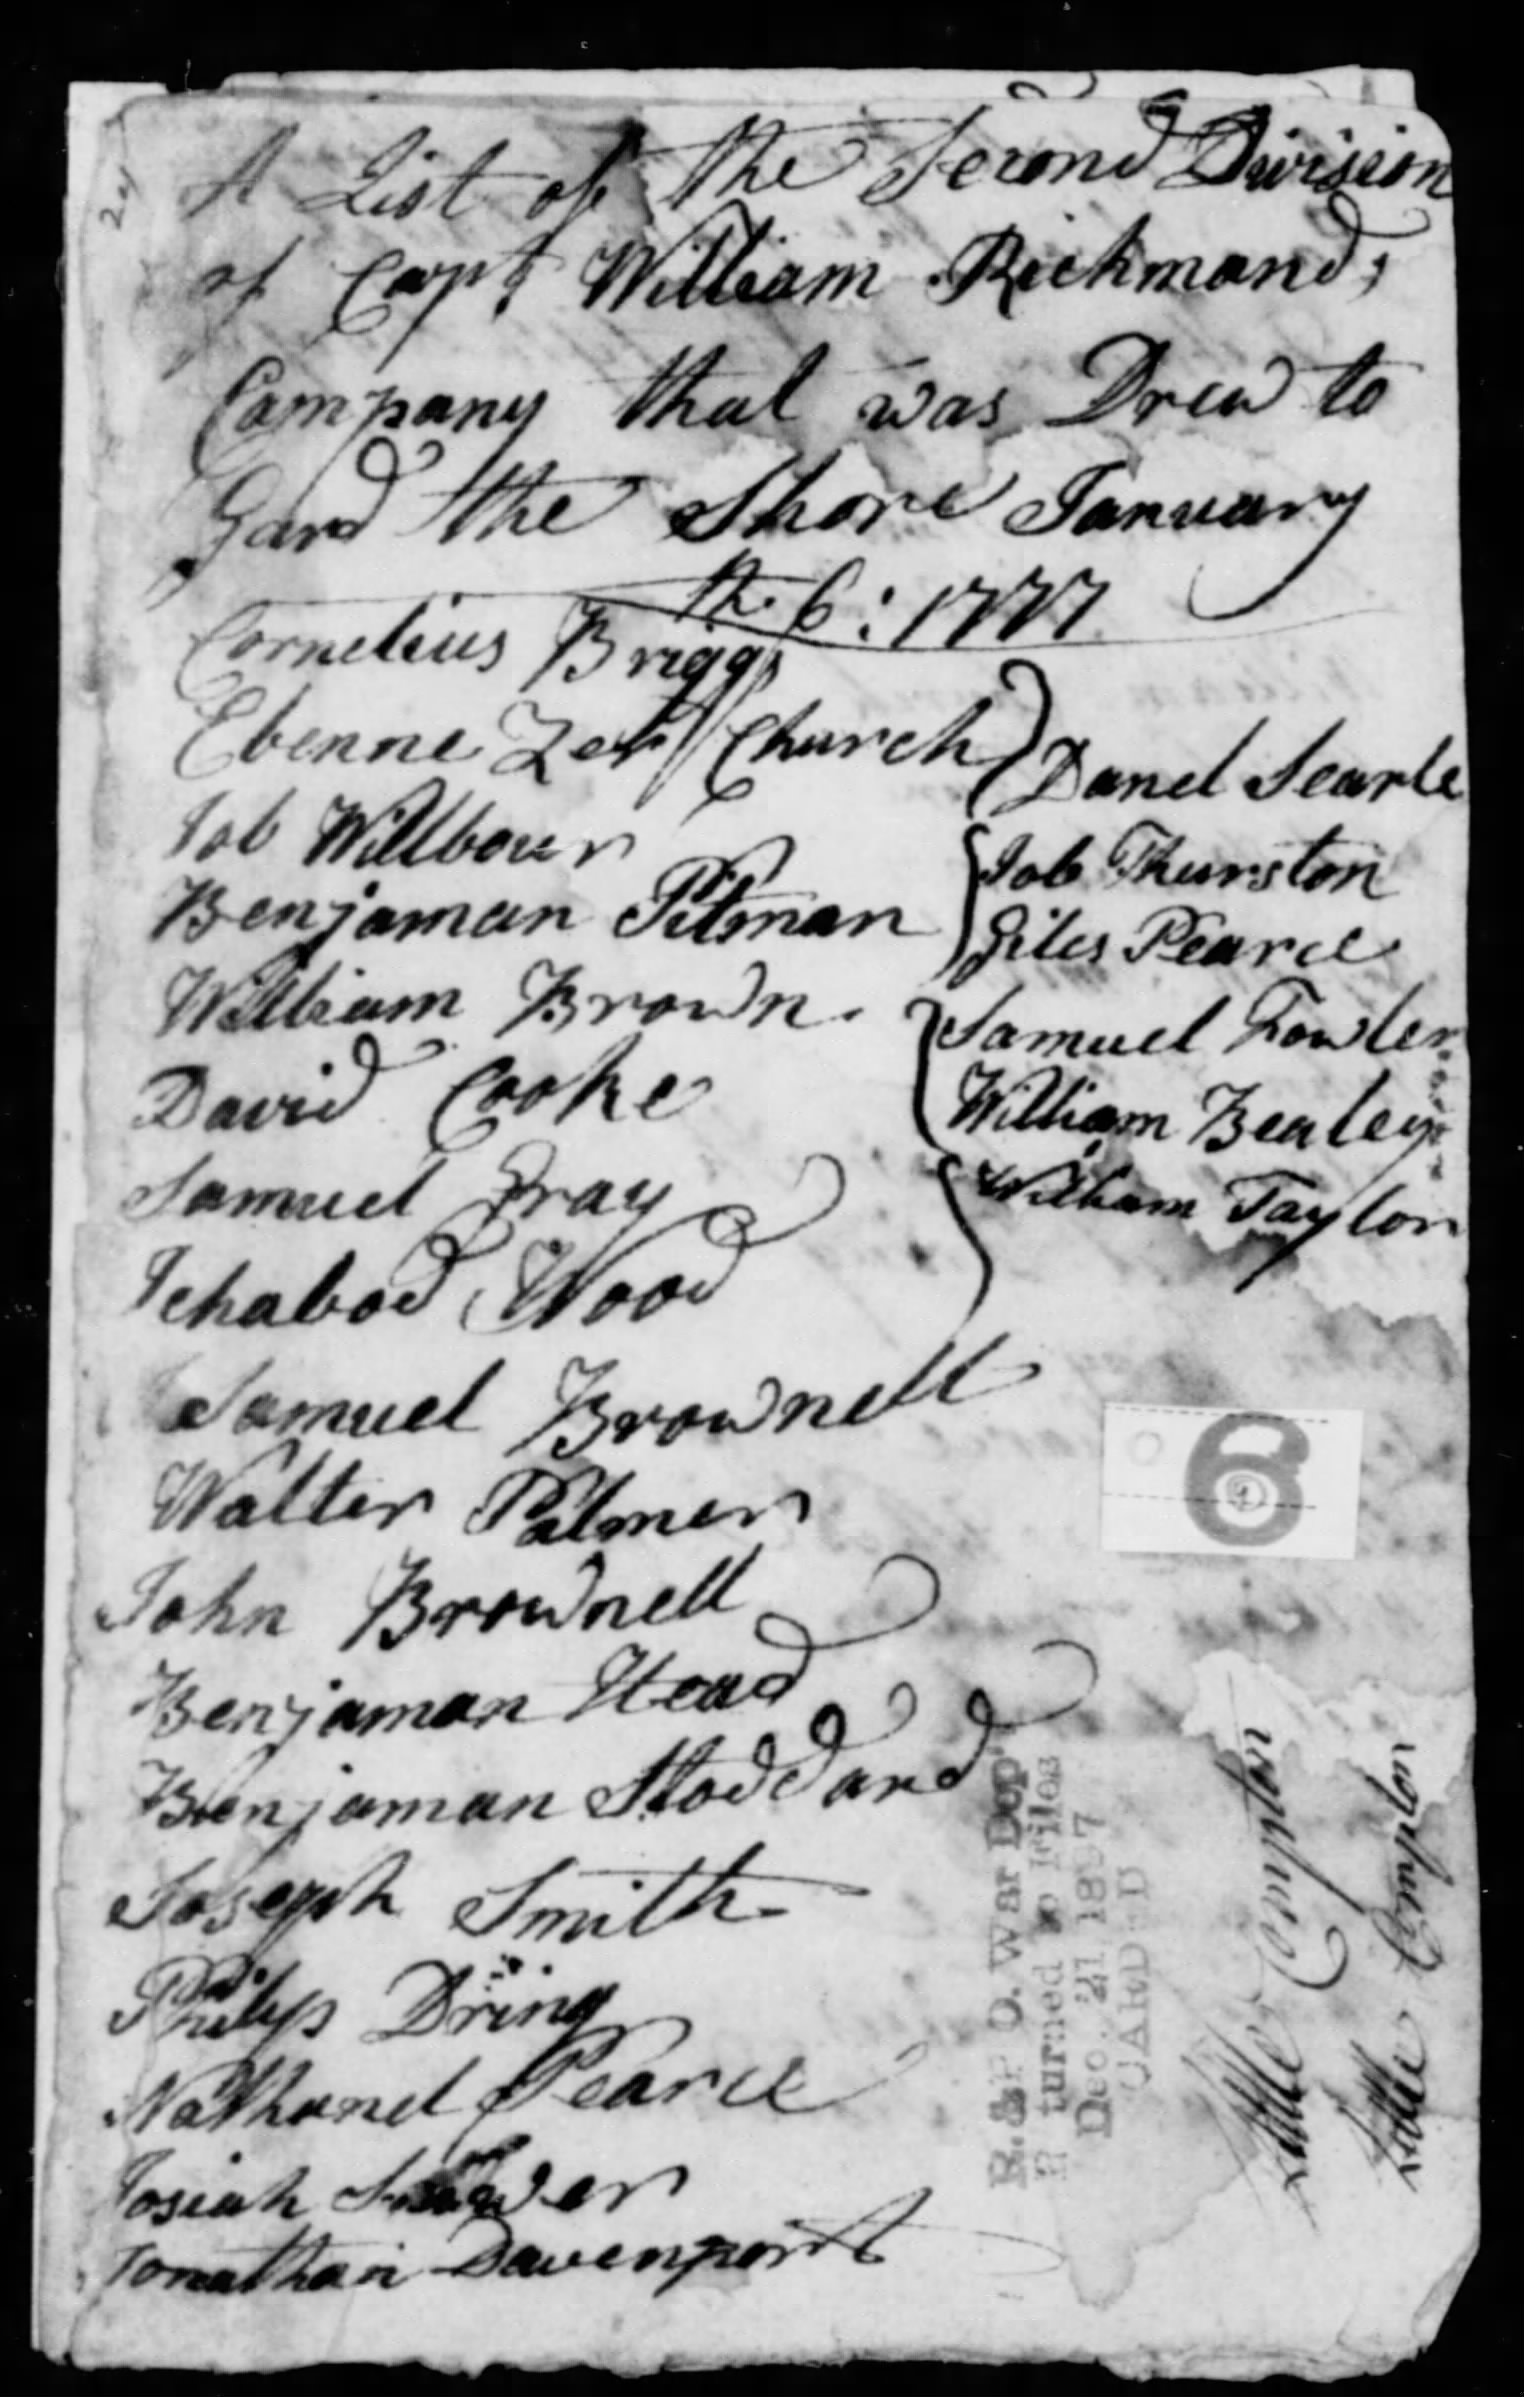 A List of the Second Division
of Capt William Richmonds
Company that was Drew to
Gard the Shore January
the 6: 1777
Cornelius Briggs
Ebenne Zer Church
Job Willbour
Benjaman Pitman
William Brown
David Cooke
Samuel Gray
Ichabod Wood
Samuel Brownell
Walter Palmer
John Brownell
Benjaman Head
Benjaman Stoddard
Joseph Smith
Philip Dring
Nathanel Pearce
Josiah
Jonathan Davenport
Danel Searle
Job Thurston
Giles Pearce
Samuel Fowler
William Bealey
William Taylor
6
R. & P. O. War Dep't
Returned to Files
Dec. 21 1897
CARDED
Little Compton
Little Compton